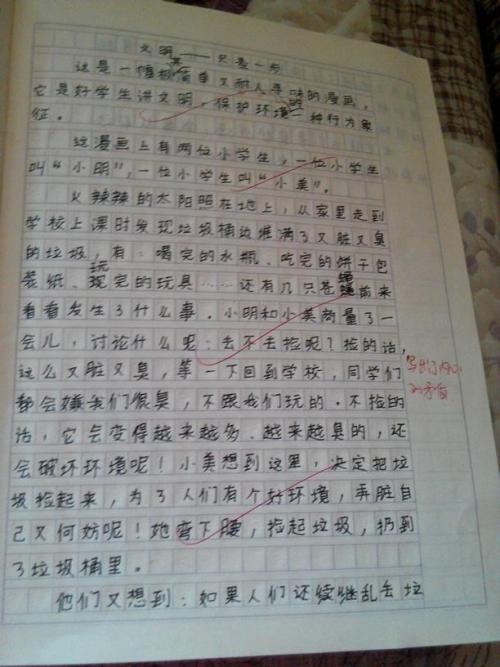 文明——只差一步
这是一幅极简单又耐人寻味的漫画，
它是好学生讲文明，保护环境的一种行为象
征。
这漫画上有两位小学生，一位小学生
叫“小明”，一位小学生叫“小美”。
火辣辣的太阳照在地上，从家里走到
学校上课时发现垃圾桶边堆满了又脏又臭
的垃圾，有：喝完的水瓶、吃完的饼干包
装纸、玩完的玩具……还有几只苍蝇前来
看看发生了什么事。小明和小美商量了一
会儿，讨论什么呢：去不去捡呢？捡的话，
这么又脏又臭，等一下回到学校，同学们
都会嫌我们很臭，不跟我们玩的。不捡的
话，它会变得越来越多、越来越臭的，还
会破坏环境呢！小美想到这里，决定把垃
圾捡起来，为了人们有个好环境，弄脏自
己又何妨呢！她弯下腰，捡起垃圾，扔到
了垃圾桶里。
他们又想到：如果人们还续继乱丢垃
写出了内心
的矛盾